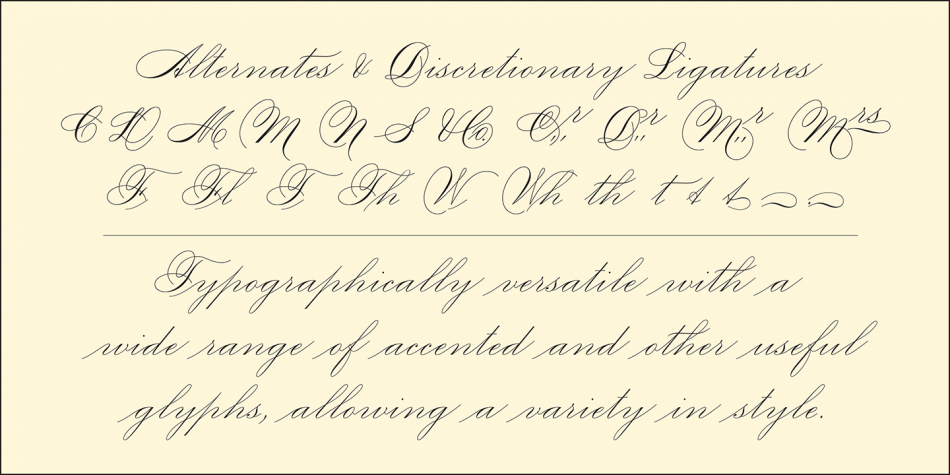 Alternates & Discretionary Ligatures
C D M M N S &Co. Or Dr Mr Mrs
F Fl T Th W Wh th t & &
Typographically versatile with a
wide range of accented and other useful
glyphs, allowing a variety in style.